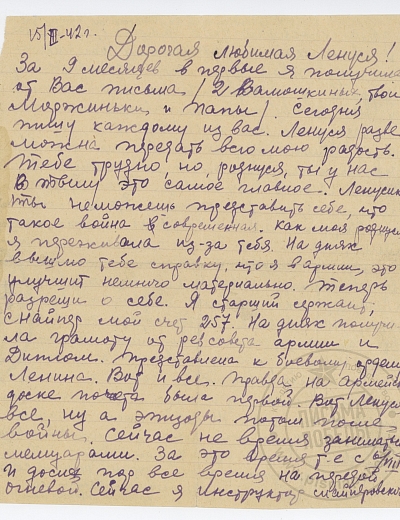 15/III-42 г.
Дорогая любимая Ленуся!
За 9 месяцев в первые я получила
от Вас письма /2 Валюшкиных, твои
Моржиньки и Папы/. Сегодня
пишу каждому из вас. Ленуся разве
можна передать всю мою радость.
Тебе трудно, но, роднуся, ты у нас
В тылу это самое главное. Ленусик
ты неможешь представить себе, что
такое война современная. Как моя роднуся
я переживала из-за тебя. На днях
вышлю тебе справку, что я в армии, это
улучшит немного материально. Теперь
разреши о себе. Я старший сержант,
снайпер мой счет 257. На днях получи-
ла грамоту от ревсовета армии и
Диплом. Представлена к боевому ордену
Ленина. Вот и все. Правда на армейской
доске почета была первой. Вот Ленуся
все, ну а эпизоды потом после
войны. Сейчас не время заниматься
мемуарами. За это время т.е. с
и до сих пор все время на передовой
огневой. Сейчас я инструктор снайперского